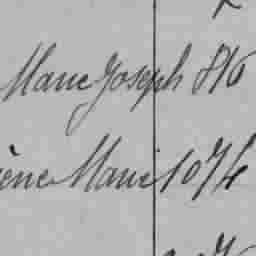 Marie Joseph 816
ène Marie 1074